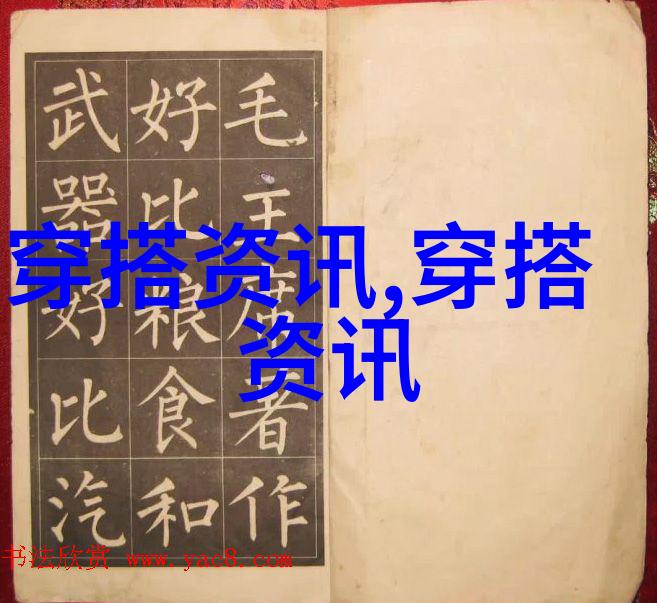 毛主席著作
好比粮食和
武器好比汽
穿搭资讯,穿搭
资讯
书法欣赏 www.yac8.com